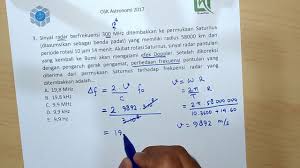 OSK Astronomi 2017
3. Sinyal radar berfrekuensi 300 MHz ditembakkan ke permukaan Saturnus
(diasumsikan sebagai benda padat) yang memiliki radius 58000 km dan
periode rotasi 10 jam 14 menit. Akibat rotasi Saturnus, sinyal radar pantulan
yang kembali ke Bumi akan mengalami Efek Doppler. Setelah dikoreksi
dengan pengaruh gerak orbit, perbedaan frekuensi pantulan yang
diterima dari permukaan Saturnus terhadap frekuensi radar yang
A. 19,8 MHz
B. 19,8 kHz
C. 9,9 MHz
D. 9,9 kHz
E. 4,9 Hz
Δf = 2 . v / c . f₀
= 2 . 9892 . 3
= 19,
v = ω R
= 2π / T R
= 2π 58 000 000 / 10.3600 + 14.60
v = 9892 m/s